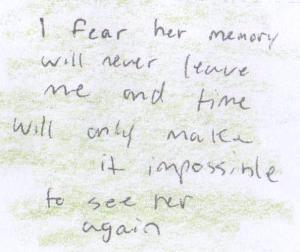 I fear her memory
will never leave
me and time
will only make
it impossible
to see her
again